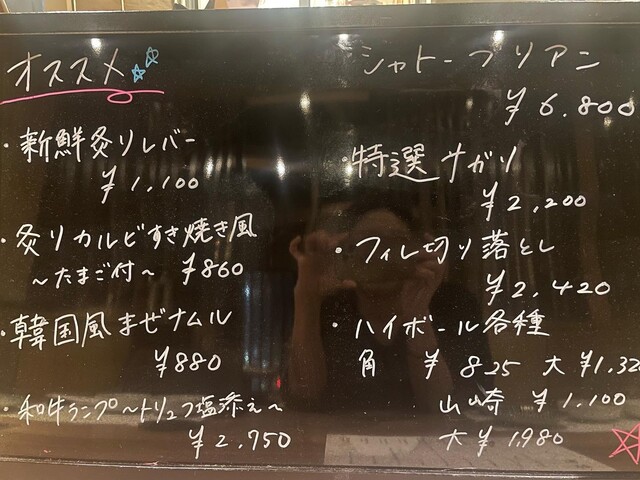 オススメ
・新鮮炙りレバー
¥1,100
・炙りカルビすき焼き風
~たまご付~ ¥860
・韓国風まぜナムル
¥880
・和牛ランプ~トリュフ塩添え~
¥2,750
シャトーブリアン
¥6,800
・特選サガリ
¥2,200
・フィレ切り落とし
¥2,420
・ハイボール各種
角 ¥825 大 ¥1,320
山崎 ¥1,100
大 ¥1,980